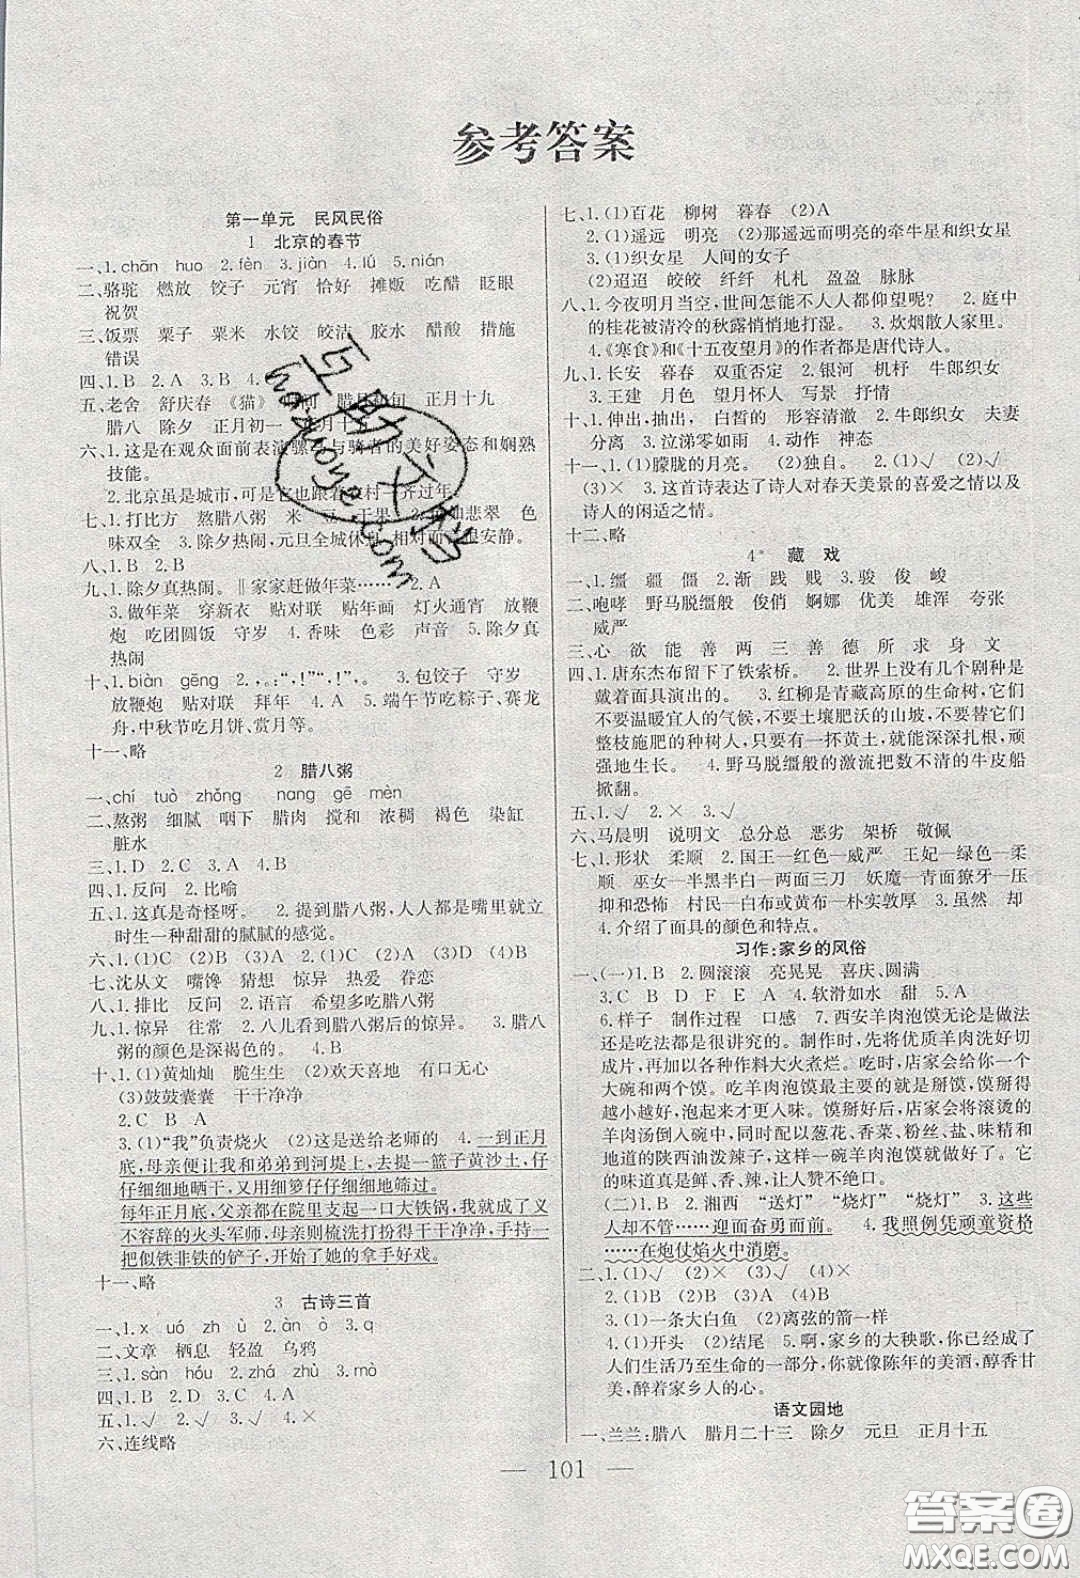 参考答案
第一单元 民风民俗
1 北京的春节
一、1.chān huo 2.fèn 3.jiàn 4.lú 5.nián
二、骆驼 燃放 饺子 元宵 恰好 摊贩 吃醋 眨眼
祝贺
三、饭票 栗子 粟米 水饺 皎洁 胶水 醋酸 措施
错误
四、1.B 2.A 3.B 4.
五、老舍 舒庆春 《猫》 腊月初旬 正月十九
腊八 除夕 正月初一 月十
六、1.这是在观众面前表演骡马与骑者的美好姿态和娴熟
技能。
2.北京虽是城市,可是它也跟着农村一齐过年。
七、1.打比方 熬腊八粥 米 豆 干果 2. 如翡翠 色
味双全 3.除夕热闹,元旦全城休息,相对而言很安静。
八、1.B 2.B
九、1.除夕真热闹。‖家家赶做年菜…… 2.A
3.做年菜 穿新衣 贴对联 贴年画 灯火通宵 放鞭
炮 吃团圆饭 守岁 4.香味 色彩 声音 5.除夕真
热闹
十、1.biàn gēng 2.,。:“,!”“,!”。 3.包饺子 守岁
放鞭炮 贴对联 拜年 4.A 5.端午节吃粽子、赛龙
舟,中秋节吃月饼、赏月等。
十一、略
2 腊八粥
一、chí tuò zhǒng nang gē mèn
二、熬粥 细腻 咽下 腊肉 搅和 浓稠 褐色 染缸
脏水
三、1.D 2.C 3.A 4.C
四、1.反问 2.比喻
五、1.这真是奇怪呀。 2.提到腊八粥,人人都是嘴里就
立时生一种甜甜的腻腻的感觉。
六、1.(1)C (2)B (3)A 2.(1)C (2)A (3)B
七、沈从文 嘴馋 猜想 惊异 热爱 眷恋
八、1.排比 反问 2.语言 希望多吃腊八粥
九、1.惊异 往常 2.八儿看到腊八粥后的惊异。 3.腊八
粥的颜色是深褐色的。 4.B
十、1.(1)黄灿灿 脆生生 (2)欢天喜地 有口无心
(3)鼓鼓囊囊 干干净净
2.C B A
3.(1)“我”负责烧火 (2)这是送给老师的 4.一到正月
底,母亲便让我和弟弟到河堤上,去提一篮子黄沙土,仔
仔细细地晒干,又用细箩仔仔细细地筛过。
每年正月底,父亲都在院里支起一口大铁锅,成了义
不容辞的火头军师,母亲则梳洗打扮得干干净净,手持一
把似铁非铁的铲子,开始了她的拿手好戏。
十一、略
3 古诗三首
一、1.x uó zh ù 2.àn ò 3.q
二、文章 栖息 轻盈 乌鸦
三、1.sàn hóu 2.zhá zhù 3.mò
四、1.B 2.D 3.C 4.A
五、1.√ 2.√ 3.× 4.√
六、连线略
七、1.(1)百花 柳树 暮春 (2)A
2.(1)遥远 明亮 (2)那遥远而明亮的牵牛星和织女星
3.(1)织女星 人间的女子
(2)迢迢 皎皎 纤纤 札札 盈盈 脉脉
八、1.今夜明月当空,世间怎能不人人都仰望呢? 2.庭中
的桂花被清冷的秋露悄悄地打湿。 3.炊烟散人家里。
4.《寒食》和《十五夜望月》的作者都是唐代诗人。
九、1.长安 暮春 双重否定 2.银河 机杼 牛郎织女
3.王建 月色 望月怀人 写景 抒情
十、1.伸出,抽出, 白皙的 形容清澈 2.牛郎织女 夫妻
分离 3.泣涕零如雨 4.动作 神态
十一、1.(1)朦胧的月亮。 (2)独自。 2.(1)√ (2)√
(3)× 3.这首诗表达了诗人对春天美景的喜爱之情以及
诗人的闲适之情。
十二、略
4* 藏 戏
一、1.缰 疆 僵 2.渐 践 贱 3.骏 俊 峻
二、咆哮 野马脱缰般 俊俏 婀娜 优美 雄浑 夸张
威严
三、心 欲 能 善 两 三 善 德 所 求 身 文
四、1.唐东杰布留下了铁索桥。 2.世界上没有几个剧种是
戴着面具演出的。 3.红柳是青藏高原的生命树,它们
不要温暖宜人的气候,不要土壤肥沃的山坡,不要人们
整枝施肥的种树人,只要有一抔黄土,就能深深扎根,顽
强地生长。 4.野马脱缰般的激流把数不清的牛皮船
掀翻。
五、1.√ 2.× 3.×
六、马晨明 说明文 总分总 恶劣 架桥 敬佩
七、1.形状 柔顺 2.国王—红色—威严 王妃—绿色—柔
顺 巫女—半黑半白—两面三刀 妖魔—青面獠牙—压
抑和恐怖 村民—白布或黄布—朴实敦厚 3.虽然 却
4.介绍了面具的颜色和特点。
习作:家乡的风俗
一、(一)1.B 2.圆滚滚 亮晃晃 喜庆、圆满
3.C B D A E F 4.软滑如水 甜 5.A
6.样子 制作过程 口感 7.西安羊肉泡馍无论是做法
还是吃法都是很讲究的。制作时,先将优质羊肉洗切
成片,再和各种作料大火煮烂。吃时,店家会给你一个
大碗和两个馍。吃羊肉泡馍最主要的就是掰馍,馍掰得
越小越好,泡起来才更入味。馍掰好了,店家会将滚烫的
羊肉汤倒入碗中,再配以葱花、香菜、粉丝、盐、味精和
地道的陕西油泼辣子,这样一碗羊肉泡馍就做好了。它
的味道真是鲜、香、辣,让人赞不绝口。
(二)1.B 2.湘西 “送灯” “烧灯” “烧灯” 3.这些
人却不管……迎面奋勇而前。 4.我照例凭顽童资格
……在炮仗焰火中消磨。
二、1.(1)√ (2)√ (3)√ (4)×
2.(1)B (2)A (3)B
3.(1)一条大白鱼 (2)离弦的箭一样
4.(1)开头 (2)结尾 5.啊,家乡的大秧歌,你已经成了
人们生活乃至生命的一部分,你就像陈年的美酒,醇香甘
美,醉着家乡人的心。
语文园地
一、兰兰:腊八 腊月二十三 除夕 元旦 正月十五
— 101 —
答案圈
MXQE.COM